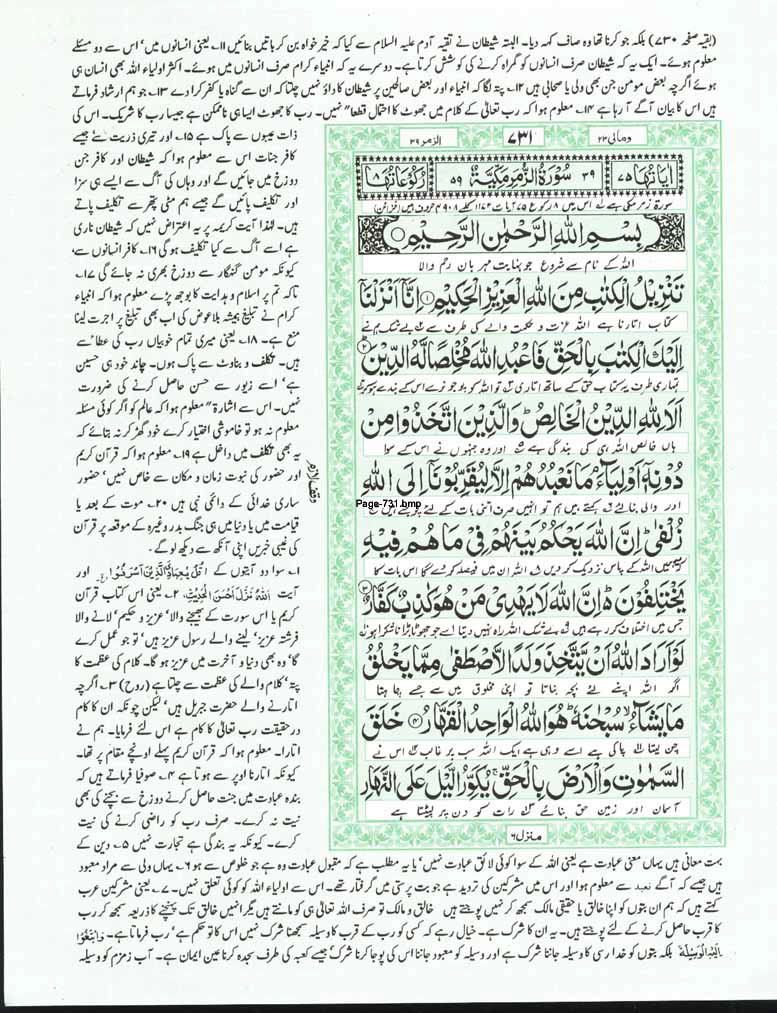 (بقیہ صفحہ ۷۳۰) بلکہ جو کرنا تھا وہ صاف کہہ دیا۔ البتہ شیطان نے تقیہ آدم علیہ السلام سے کیا کہ خیر خواہ بن کر باتیں بنائیں ۱۱۔ یعنی انسانوں میں' اس سے دو مسئلے
معلوم ہوئے۔ ایک یہ کہ شیطان صرف انسانوں کو گمراہ کرنے کی کوشش کرتا ہے۔ دوسرے یہ کہ انبیاء کرام صرف انسانوں میں ہوئے۔ اکثر اولیاء اللہ بھی انسان ہی
ہوئے اگرچہ بعض مومن جن بھی ولی یا صحابی ہیں ۱۲۔ پتہ لگا کہ انبیاء اور بعض صالحین پر شیطان کا داؤ نہیں چلتا کہ ان سے گناہ یا کفر کرا دے ۱۳۔ جو ہم ارشاد فرماتے
ہیں اس کا بیان آگے آ رہا ہے ۱۴۔ معلوم ہوا کہ رب تعالیٰ کے کلام میں جھوٹ کا احتمال قطعاً نہیں۔ رب کا جھوٹ ایسا ہی ناممکن ہے جیسا رب کا شریک۔ اس کی
ذات عیبوں سے پاک ہے ۱۵۔ اور تیری ذریت سے جیسے
کافر جنات اس سے معلوم ہوا کہ شیطان اور کافر جن
دوزخ میں جائیں گے اور وہاں کی آگ سے ایسے ہی سزا
اور تکلیف پائیں گے جیسے ہم مٹی پتھر سے تکلیف پاتے
ہیں۔ لہٰذا آیت کریمہ پر یہ اعتراض نہیں کہ شیطان ناری
ہے اسے آگ سے کیا تکلیف ہوگی ۱۶۔ کافر انسانوں سے،
کیونکہ مومن گنہگار سے دوزخ بھری نہ جائے گی ۱۷۔
تاکہ تم پر اسلام و ہدایت کا بوجھ پڑے معلوم ہوا کہ انبیاء
کرام نے تبلیغ ہمیشہ بلا عوض کی اب بھی تبلیغ پر اجرت لینا
منع ہے۔ ۱۸۔ یعنی میری تمام خوبیاں رب کی عطا سے
ہیں۔ تکلف و بناوٹ سے پاک ہوں۔ چاند خود ہی حسین
ہے' اسے زیور سے حسن حاصل کرنے کی ضرورت
نہیں۔ اس سے اشارۃً معلوم ہوا کہ عالم کو اگر کوئی مسئلہ
معلوم نہ ہو تو خاموشی اختیار کرے خود گھڑ کر نہ بتائے کہ
یہ بھی تکلف میں داخل ہے ۱۹۔ معلوم ہوا کہ قرآن کریم
اور حضور کی نبوت زمان و مکان سے خاص نہیں' حضور
ساری خدائی کے دائمی نبی ہیں ۲۰۔ موت کے بعد یا
قیامت میں یا دنیا میں ہی جنگ بدر وغیرہ کے موقعہ پر قرآن
کی غیبی خبریں اپنی آنکھ سے دیکھ لو گے۔
۱۔ سوا دو آیتوں کے قُلْ يٰعِبَادِىَ الَّذِيْنَ اَسْرَفُوْا الخ اور
آیت اَللّٰهُ نَزَّلَ اَحْسَنَ الْحَدِيْثِ ۲۔ یعنی اس کتاب قرآن
کریم یا اس سورت کے بھیجنے والا' عزیز و حکیم' لانے والا
فرشتہ عزیز' لینے والے رسول عزیز ہیں' تو جو عمل کرے
گا' وہ بھی دنیا و آخرت میں عزیز ہو گا۔ کلام کی عظمت کا
پتہ' کلام والے کی عظمت سے چلتا ہے (روح) ۳۔ اگرچہ
اتارنے والے حضرت جبریل ہیں' لیکن چونکہ ان کا کام
درحقیقت رب تعالیٰ کا کام ہے اس لئے فرمایا۔ ہم نے
اتارا۔ معلوم ہوا کہ قرآن کریم پہلے اونچے مقام پر تھا۔
کیونکہ اتارنا اوپر سے ہوتا ہے ۴۔ صوفیا فرماتے ہیں کہ
بندہ عبادت میں جنت حاصل کرنے دوزخ سے بچنے کی بھی
نیت نہ کرے۔ صرف رب کو راضی کرنے کی نیت
کرے۔ کیونکہ یہ بندگی ہے تجارت نہیں ۵۔ دین کے
الزمر ۳۹ ۷۳۱ ومالی ۲۳
اٰيَاتُهَا ۷۵ ۳۹ سُوْرَةُ الزُّمَرِ مَكِّيَّةٌ ۵۹ رُكُوْعَاتُهَا ۸
سورۃ زمر مکی ہے اس میں ۸ رکوع ۷۵ آیات ۱۱۷۲ کلمے ۴۹۰۸ حروف ہیں (خزائن)
بِسْمِ اللّٰهِ الرَّحْمٰنِ الرَّحِيْمِ
اللہ کے نام سے شروع جو نہایت مہربان رحم والا
تَنْزِيْلُ الْكِتٰبِ مِنَ اللّٰهِ الْعَزِيْزِ الْحَكِيْمِ ۱ اِنَّاۤ اَنْزَلْنَاۤ
کتاب اتارنا ہے اللہ عزت و حکمت والے کی طرف سے بے شک ہم نے
اِلَيْكَ الْكِتٰبَ بِالْحَقِّ فَاعْبُدِ اللّٰهَ مُخْلِصًا لَّهُ الدِّيْنَ ۲
تمہاری طرف یہ کتاب حق کے ساتھ اتاری تو اللہ کو پوجو نرے اس کے بندے ہو کر
اَلَا لِلّٰهِ الدِّيْنُ الْخَالِصُ وَالَّذِيْنَ اتَّخَذُوْا مِنْ
ہاں خالص اللہ ہی کی بندگی ہے اور وہ جنہوں نے اس کے سوا
دُوْنِهٖۤ اَوْلِيَآءَ مَا نَعْبُدُهُمْ اِلَّا لِيُقَرِّبُوْنَاۤ اِلَى اللّٰهِ
اور والی بنا لئے کہتے ہیں ہم تو انہیں صرف اتنی بات کے لئے پوجتے ہیں کہ
Page-731.bmp
زُلْفٰى اِنَّ اللّٰهَ يَحْكُمُ بَيْنَهُمْ فِىْ مَا هُمْ فِيْهِ
یہ ہمیں اللہ کے پاس نزدیک کر دیں اللہ ان میں فیصلہ کر دے گا اس بات کا
يَخْتَلِفُوْنَ اِنَّ اللّٰهَ لَا يَهْدِىْ مَنْ هُوَ كٰذِبٌ كَفَّارٌ ۳
جس میں اختلاف کر رہے ہیں بے شک اللہ راہ نہیں دیتا اسے جو جھوٹا بڑا ناشکرا ہو
لَوْ اَرَادَ اللّٰهُ اَنْ يَّتَّخِذَ وَلَدًا لَّاصْطَفٰى مِمَّا يَخْلُقُ
اگر اللہ اپنے لئے بچہ بناتا تو اپنی مخلوق میں سے جسے چاہتا
مَا يَشَآءُ سُبْحٰنَهٗ هُوَ اللّٰهُ الْوَاحِدُ الْقَهَّارُ ۴ خَلَقَ
چن لیتا پاکی ہے اسے وہی ہے ایک اللہ سب پر غالب اس نے
السَّمٰوٰتِ وَالْاَرْضَ بِالْحَقِّ يُكَوِّرُ الَّيْلَ عَلَى النَّهَارِ
آسمان اور زمین حق بنائے رات کو دن پر لپیٹتا ہے
منزل ۶
وقف لازم
بہت معانی ہیں یہاں معنی عبادت ہے یعنی اللہ کے سوا کوئی لائق عبادت نہیں' یا یہ مطلب ہے کہ مقبول عبادت وہ ہے جو خلوص سے ہو ۶۔ یہاں ولی سے مراد معبود
ہیں جیسے کہ آگے نَعْبُدُ سے معلوم ہوا اور اس میں مشرکین کی تردید ہے جو بت پرستی میں گرفتار تھے۔ اس سے اولیاء اللہ کو کوئی تعلق نہیں۔ ۷۔ یعنی مشرکین عرب
کہتے ہیں کہ ہم ان بتوں کو اپنا خالق یا حقیقی مالک سمجھ کر نہیں پوجتے ہیں خالق و مالک تو صرف اللہ تعالیٰ ہی کو مانتے ہیں مگر انہیں خالق تک پہنچنے کا ذریعہ سمجھ کر رب
کا قرب حاصل کرنے کے لئے پوجتے ہیں۔ یہ ان کا شرک ہے۔ خیال رہے کہ کسی کو رب کے قرب کا وسیلہ سمجھنا شرک نہیں اس کا تو حکم ہے' رب فرماتا ہے۔ وَابْتَغُوْۤا
اِلَيْهِ الْوَسِيْلَةَ بلکہ بتوں کو خدا رسی کا وسیلہ جاننا شرک ہے اور وسیلہ کو معبود جاننا اس کی پوجا کرنا شرک' جیسے کعبہ کی طرف سجدہ کرنا عین ایمان ہے۔ آب زمزم کو وسیلہ